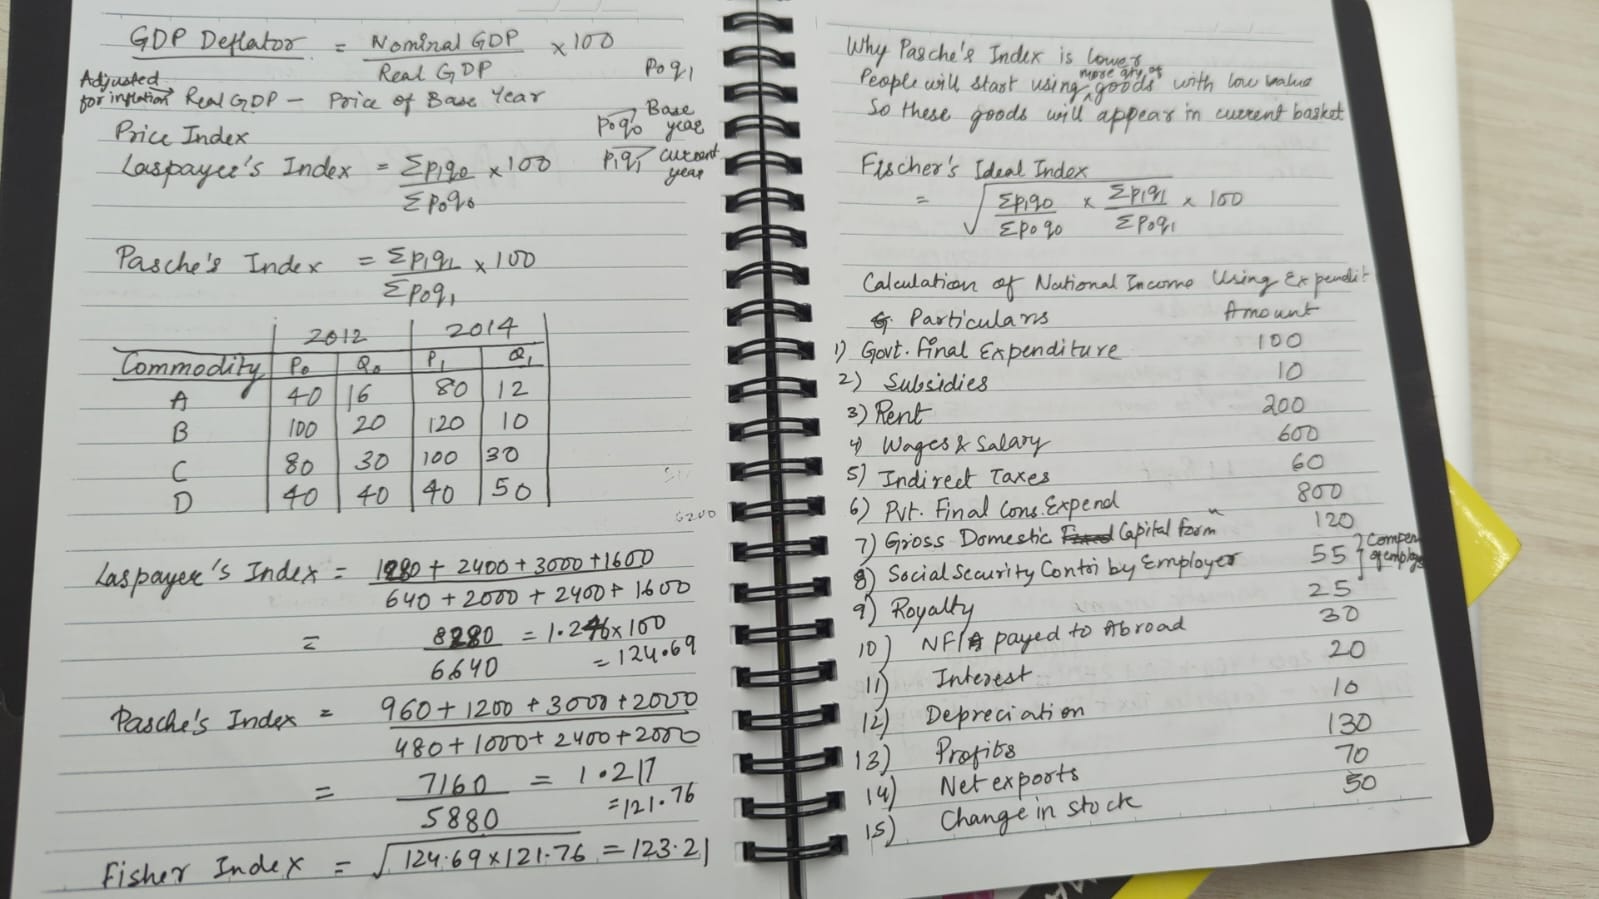 GDP Deflator = Nominal GDP / Real GDP × 100
P0q1
Adjusted for inflation → Real GDP - Price of Base Year
Price Index
P0q0 → Base year
P1q1 → current year
Laspayer's Index = Σp1q0 / Σp0q0 × 100
Pasche's Index = Σp1q1 / Σp0q1 × 100
2012 2014
Commodity P0 Q0 P1 Q1
A 40 16 80 12
B 100 20 120 10
C 80 30 100 30
D 40 40 40 50
Laspayer's Index = 1280 + 2400 + 3000 + 1600
640 + 2000 + 2400 + 1600
= 8280 / 6640 = 1.246 × 100
= 124.69
Pasche's Index = 960 + 1200 + 3000 + 2000
480 + 1000 + 2400 + 2000
= 7160 / 5880 = 1.217
= 121.76
Fisher Index = √124.69 × 121.76 = 123.21
Why Pasche's Index is lower
People will start using more qty of goods with low value
So these goods will appear in current basket
Fischer's Ideal Index
= √Σp1q0 / Σp0q0 × Σp1q1 / Σp0q1 × 100
Calculation of National Income Using Expendit
Particulars Amount
1) Govt. Final Expenditure 100
2) Subsidies 10
3) Rent 200
4) Wages & Salary 600
5) Indirect Taxes 60
6) Pvt. Final Cons. Expend 800
7) Gross Domestic Capital Form" 120
8) Social Security Contri by Employer 55 } Compen of employe
9) Royalty 25
10) NFIA payed to Abroad 30
11) Interest 20
12) Depreciation 10
13) Profits 130
14) Net exports 70
15) Change in stock 50